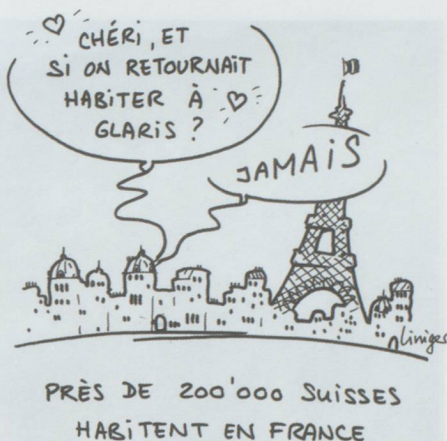 CHÉRI, ET
SI ON RETOURNAIT
HABITER À
GLARIS ?
JAMAIS
Liniger
PRÈS DE 200'000 SUISSES
HABITENT EN FRANCE